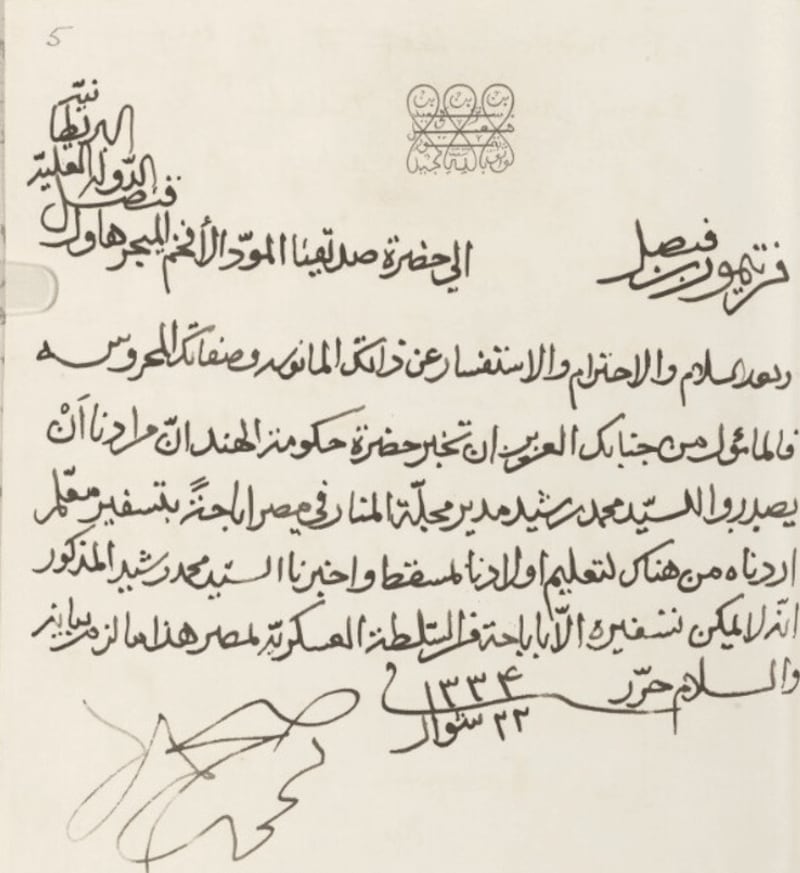 5
من تيمور بن فيصل
الي حضرة صديقنا المودّ الأفخم الميجر هاورل
قنصل
الدّولة العليّة
البريطا
نيّة
وبعد السلام والاحترام والاستفسار عن ذاتك المانوسه وصفاتك المحروسه
فالمائول من جنابك العزيز ان تخبر حضرة حكومة الهند انّ مرادنا اَنْ
يصدروا للسيّد محمد رشيد مدير مجلّة المنار في مصر اباحةً بتسفير معلّم
اردناه من هناك لتعليم اولادنا لمسقط واخبرنا السيّد محمد رشيد المذكور
انّه لا يمكن تسفيره الّا باباحة من السّلطة العسكريّة لمصر هذا ما لزم بيانه
والسلام حرّر ١٣٣٤
٢٢ شوال